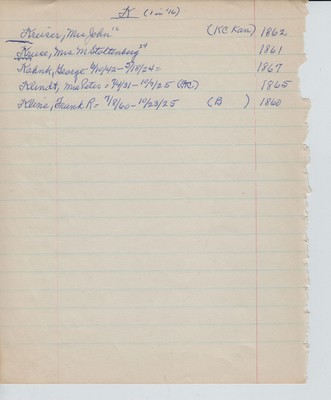 K (1 in '16)
Kruser, Mrs John '' (KC Kan) 1862
Kruse, Mrs M. Stoltenberg 24 1861
Kahnk, George 4/10/42 - 9/18/24 = 1867
Klindt, Mrs Peter = 7/4/31 - 10/9/25 (AC) 1865
Kline, Frank R = 7/8/60 - 10/23/25 (B ) 1860